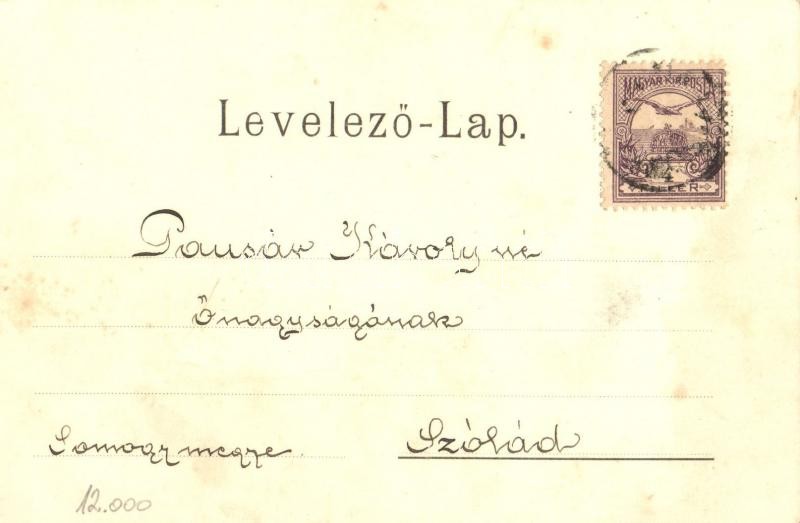 Levelező-Lap.
MAGYAR KIR. POSTA
FILLÉR
Pausár Károly né
Őnagyságának
Somogy megye
Szólád
12.000